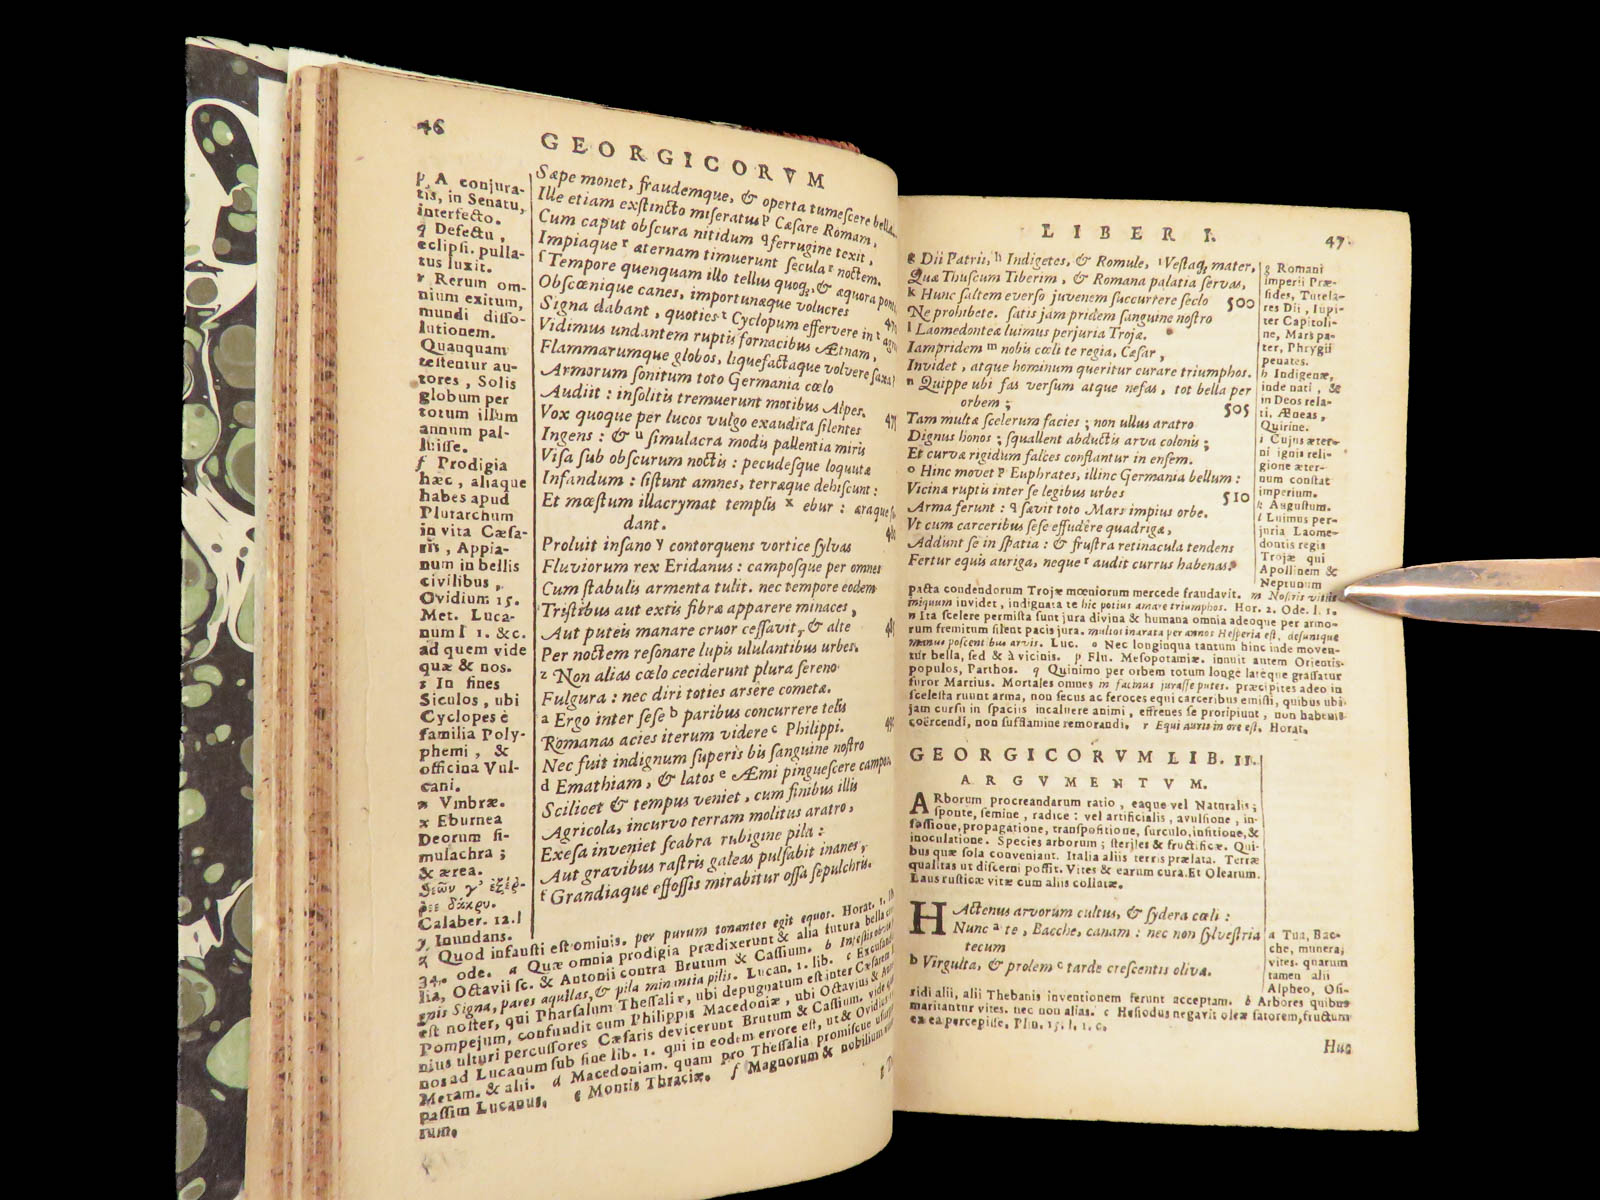 46
GEORGICORVM
p A conjura-
tis, in Senatu,
interfecto.
q Defectu,
eclipsi. pulla-
tus luxit.
r Rerum om-
nium exitum,
mundi disso-
lutionem.
Quanquam
testentur au-
tores, Solis
globum per
totum illum
annum pal-
luisse.
ſ Prodigia
hæc, aliaque
habes apud
Plutarchum
in vita Cæsa-
ris, Appia-
num in bellis
civilibus,
Ovidium 15.
Met. Luca-
num l 1. &c.
ad quem vide
quæ & nos.
t In fines
Siculos, ubi
Cyclopes è
familia Poly-
phemi, &
officina Vul-
cani.
u Vmbræ.
x Eburnea
Deorum si-
mulachra;
& ærea.
Calaber. 12.l
y Inundans.
Sæpe monet, fraudemque, & operta tumescere bella.
Ille etiam exstincto miseratus p Cæsare Romam,
Cum caput obscura nitidum q ferrugine texit,
Impiaque r æternam timuerunt secula noctem.
ſ Tempore quenquam illo tellus quoq;, & æquora
Obscœnique canes, importunæque volucres
Signa dabant, quoties t Cyclopum effervere in
Vidimus undantem ruptis fornacibus Ætnam,
Flammarumque globos, liquefactaque volvere saxa?
Armorum sonitum toto Germania cœlo
Audiit: insolitis tremuerunt motibus Alpes.
Vox quoque per lucos vulgo exaudita silentes
Ingens: & u simulacra modis pallentia miris
Visa sub obscurum noctis: pecudesque loquutæ
Infandum: sistunt amnes, terræque dehiscunt:
Et mœstum illacrymat templis x ebur: æraque
dant.
Proluit insano y contorquens vortice sylvas
Fluviorum rex Eridanus: camposque per omnes
Cum stabulis armenta tulit. nec tempore eodem
Tristibus aut extis fibræ apparere minaces,
Aut puteis manare cruor cessavit, & alte
Per noctem resonare lupis ululantibus urbes.
z Non alias cœlo ceciderunt plura sereno
Fulgura: nec diri toties arsere cometæ.
a Ergo inter sese b paribus concurrere telis
Romanas acies iterum videre c Philippi.
Nec fuit indignum superis bis sanguine nostro
d Emathiam, & latos e Æmi pinguescere campos
Scilicet & tempus veniet, cum finibus illis
Agricola, incurvo terram molitus aratro,
Exesa inveniet scabra rubigine pila:
Aut gravibus rastris galeas pulsabit inanes,
f Grandiaque effossis mirabitur ossa sepulchris.
z Quod infausti est ominis. per purum tonantes egit equos. Horat. 1.
34. ode. a Quæ omnia prodigia prædixerunt & alia futura bella
lia, Octavii sc. & Antonii contra Brutum & Cassium. b Infestis
gnis Signa, pares aquilas, & pila minantia pilis. Lucan. 1. lib. c
est noster, qui Pharsalum Thessaliæ, ubi depugnatum est inter Cæsarem
Pompejum, confundit cum Philippis Macedoniæ, ubi Octavius &
nius ulturi percussores Cæsaris devicerunt Brutum & Cassium. vide
nos ad Lucanum sub fine lib. 1. qui in eodem errore est, ut & Ovidius
Metam. & alii. d Macedoniam. quam pro Thessalia promiscue
passim Lucanus. e Montis Thraciæ. f Magnorum & nobilium
rum.
LIBER I.
47
g Dii Patrii, h Indigetes, & Romule, i Vestaq; mater,
Quæ Thuscum Tiberim, & Romana palatia servas,
k Hunc saltem everso juvenem succurrere seclo 500
Ne prohibete. satis jam pridem sanguine nostro
l Laomedonteæ luimus perjuria Trojæ.
Iampridem m nobis cœli te regia, Cæsar,
Invidet, atque hominum queritur curare triumphos.
n Quippe ubi fas versum atque nefas, tot bella per
orbem; 505
Tam multæ scelerum facies; non ullus aratro
Dignus honos; squallent abductis arva colonis;
Et curvæ rigidum falces conflantur in ensem.
o Hinc movet p Euphrates, illinc Germania bellum:
Vicinæ ruptis inter se legibus urbes 510
Arma ferunt: q sævit toto Mars impius orbe.
Vt cum carceribus sese effudêre quadrigæ,
Addunt se in spatia: & frustra retinacula tendens
Fertur equis auriga, neque r audit currus habenas.
g Romani
imperii Præ-
sides, Tutela-
res Dii, Iupi-
ter Capitoli-
ne, Mars pa-
ter, Phrygii
penates.
h Indigenæ,
inde nati, &
in Deos rela-
ti. Æneas,
Quirine.
i Cujus æter-
ni ignis reli-
gione æter-
num constat
imperium.
k Augustum.
l Luimus per-
juria Laome-
dontis regis
Trojæ qui
Apollinem &
Neptunum
pacta condendorum Trojæ mœniorum mercede fraudavit. m Nostris vitiis
iniquum invidet, indignata te hic potius amare triumphos. Hor. 2. Ode. l. 1.
n Ita scelere permista sunt jura divina & humana omnia adeoque per armo-
rum fremitum silent pacis jura. multos inarata per annos Hesperia est, desuntque
manus poscentibus arvis. Luc. o Nec longinqua tantum hinc inde moven-
tur bella, sed & à vicinis. p Flu. Mesopotamiæ. innuit autem Orientis
populos, Parthos. q Quinimo per orbem totum longe lateque grassatur
furor Martius. Mortales omnes in facinus jurasse putes. præcipites adeo in
scelesta ruunt arma, non secus ac feroces equi carceribus emissi, quibus ubi
jam cursu in spaciis incaluere animi, effrenes se proripiunt, non habenis
coërcendi, non sufflamine remorandi. r Equi auris in ore est. Horat.
GEORGICORVM LIB. II.
ARGVMENTVM.
ARborum procreandarum ratio, eaque vel Naturalis;
sponte, semine, radice: vel artificialis, avulsione, in-
fossione, propagatione, transpositione, surculo, insitione, &
inoculatione. Species arborum; steriles & fructificæ. Qui-
bus quæ sola conveniant. Italia aliis terris prælata. Terræ
qualitas ut discerni possit. Vites & earum cura. Et Olearum.
Laus rusticæ vitæ cum aliis collatæ.
HActenus arvorum cultus, & sydera cœli:
Nunc a te, Bacche, canam: nec non sylvestria
tecum
b Virgulta, & prolem c tarde crescentis olivæ.
a Tua, Bac-
che, munera;
vites. quarum
tamen alii
Alpheo, Osi-
ridi alii, alii Thebanis inventionem ferunt acceptam. b Arbores quibus
maritantur vites. nec non alias. c Hesiodus negavit oleæ satorem, fructum
ex ea percepisse. Plin. 15. l. 1. c.
Huc